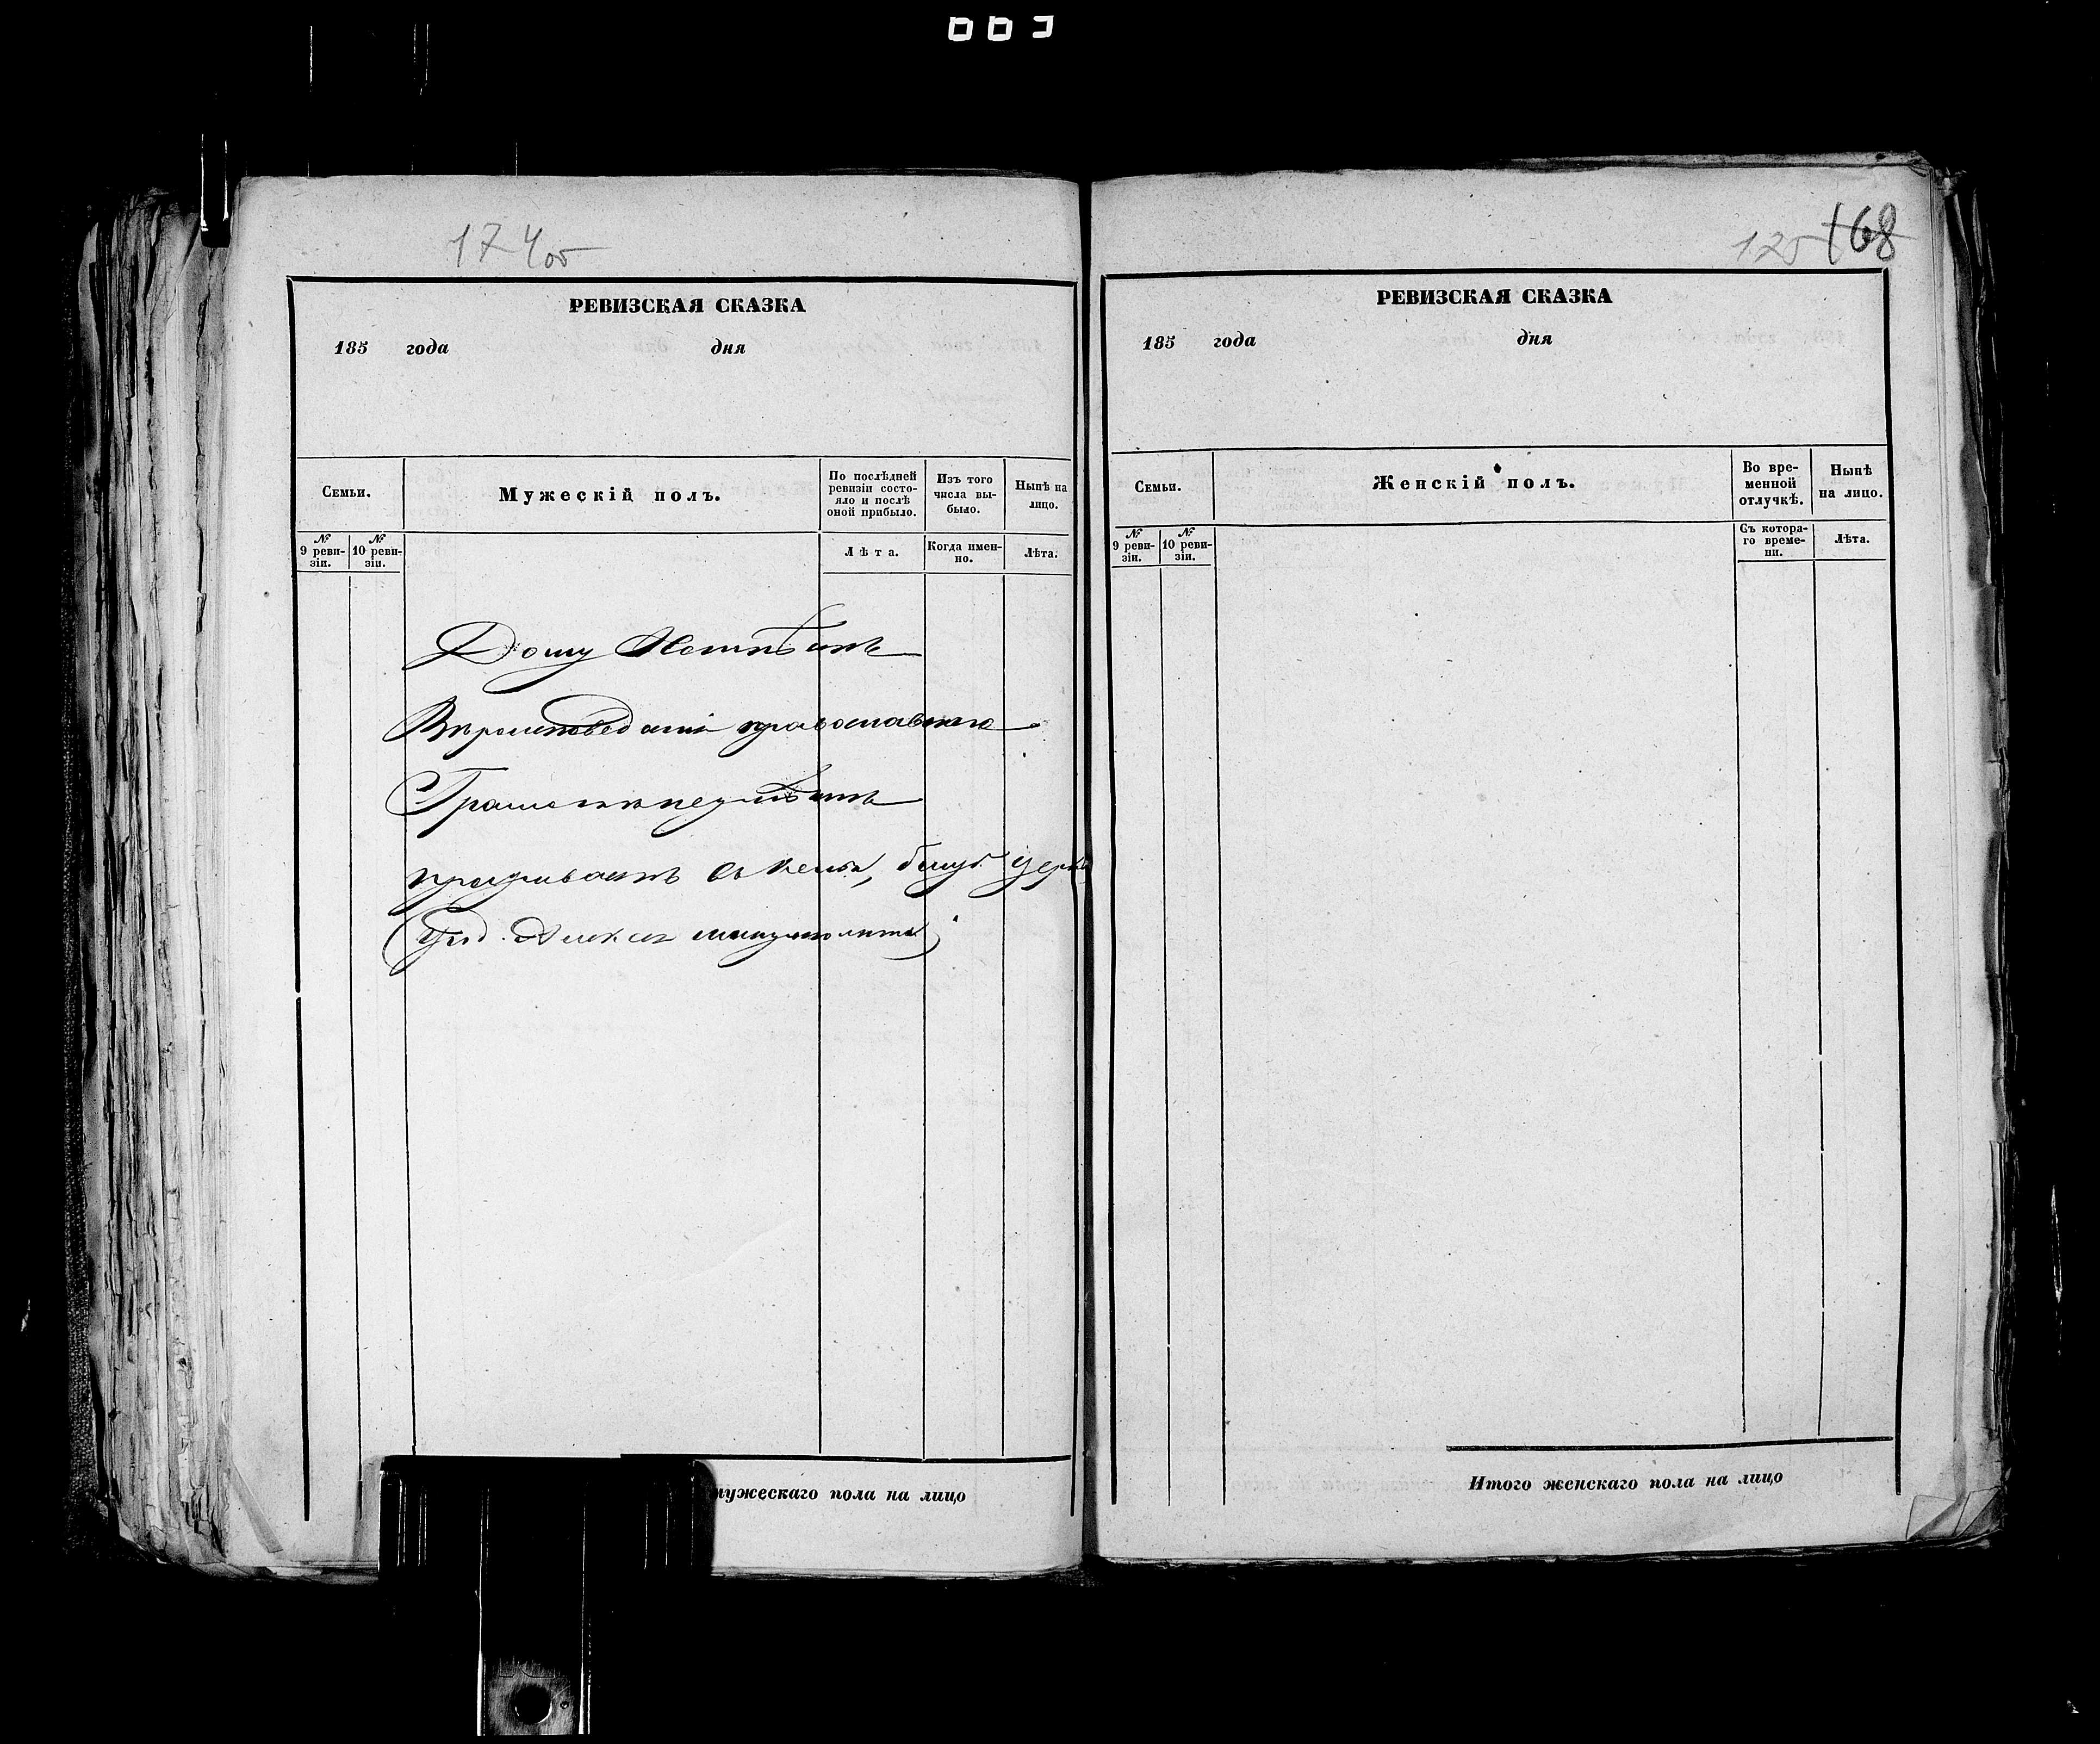 003
174об
РЕВИЗСКАЯ СКАЗКА
185 года дня
Семьи.
Мужескій полъ.
По послѣдней ревизіи состояло и послѣ оной прибыло.
Изъ того числа выбыло.
Нынѣ на лицо.
№ 9 ревизіи.
№ 10 ревизіи.
Лѣта.
Когда именно.
Лѣта.
Дому Неимѣитъ
Вѣроисповѣданія православнаго
Грамотѣ неумѣитъ
проживаитъ въ
мужескаго пола на лицо
125 168
РЕВИЗСКАЯ СКАЗКА
185 года дня
Семьи.
Женскій полъ.
Во временной отлучкѣ.
Нынѣ на лицо.
№ 9 ревизіи.
№ 10 ревизіи.
Съ котораго времени.
Лѣта.
Итого женскаго пола на лицо